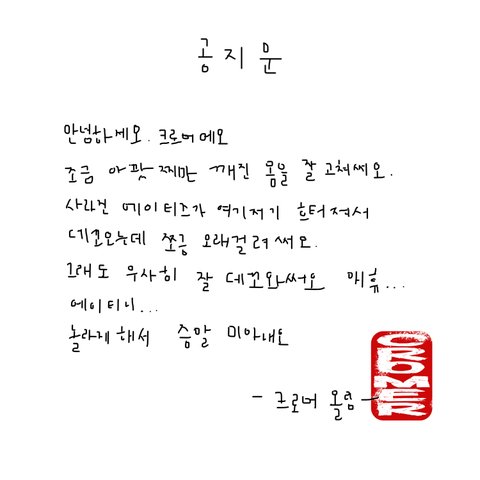 공지문
안념하세오. 크로머에오
조금 아팠찌만 깨진 몸을 잘 고쳐써오.
사라진 에이티즈가 여기저기 흐터져서
데꼬오는데 쪼금 오래걸려써오.
그래도 무사히 잘 데꼬와써오 예휴...
에이티니...
놀라게해서 증말 미아내오
- 크로머 올림 -
CROMER